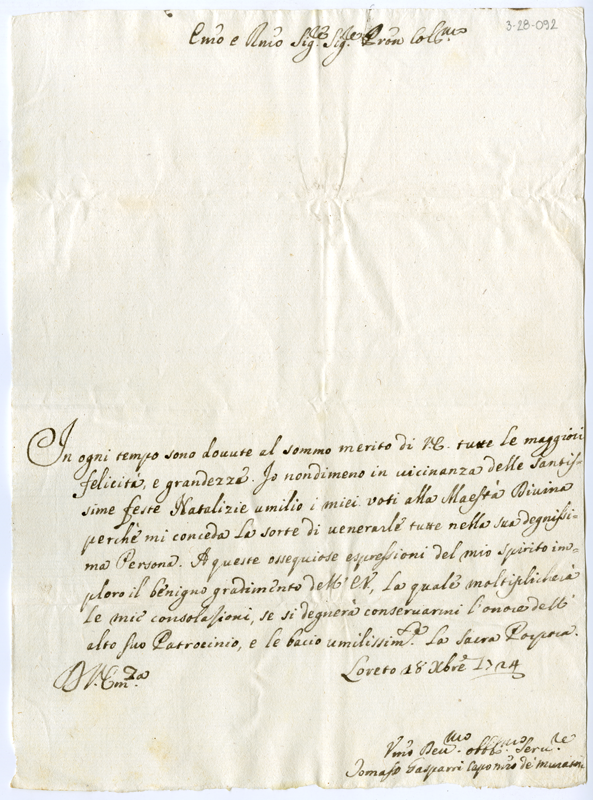 3-28-092
Emo e Rmo Sig.re Sig.re Pron Col.mo
In ogni tempo sono dovute al sommo merito di V.E. tutte le maggiori
felicità, e grandezze. Io nondimeno in vicinanza delle Santis-
sime feste Natalizie umilio i miei voti alla Maestà Divina
perchè mi conceda la sorte di venerarle tutte nella sua degnissi-
ma Persona. A queste ossequiose espressioni del mio spirito im-
ploro il benigno gradimento dell'E.V., la quale moltiplicherà
le mie consolazioni, se si degnerà conservarmi l'onore dell'
alto suo Patrocinio, e le bacio umilissim.te la Sacra Porpora.
D V. Em.za
Loreto 18 Xbre 1724
Vmo Dev.mo obb.mo Serv.re
Tomaso Gasparri Capo mro de Muratori